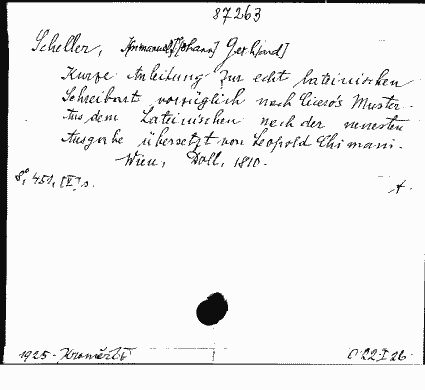 87263
Scheller, Immanuel J[ohann] Gerh[ard]
Kurze Anleitung zur echt lateinischen
Schreibart vorzüglich nach Cicero's Muster.
Aus dem Lateinischen nach der neuesten
Ausgabe übersetzt von Leopold Chimani.
Wien, Doll, 1810.
8°, 451, [V] s.
A.
1925 - Kroměříž
O 22-I 26